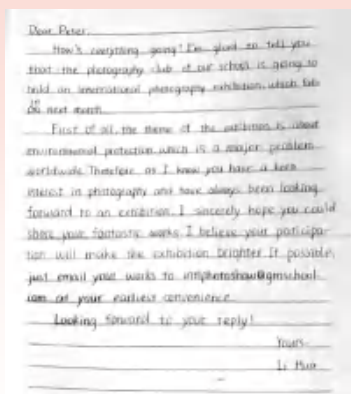 Dear Peter,
How's everything going? I'm glad to tell you
that the photography club of our school is going to
hold an international photography exhibition, which
next month.
First of all, the theme of the exhibition is about
environmental protection which is a major problem
worldwide. Therefore, as I know you have a keen
interest in photography and have always been looking
forward to an exhibition. I sincerely hope you could
share your fantastic works. I believe your participa-
tion will make the exhibition brighter. If possible,
just email your works to intlphotoshow@gmschool
.com at your earliest convenience.
Looking forward to your reply!
Yours
Li Hua